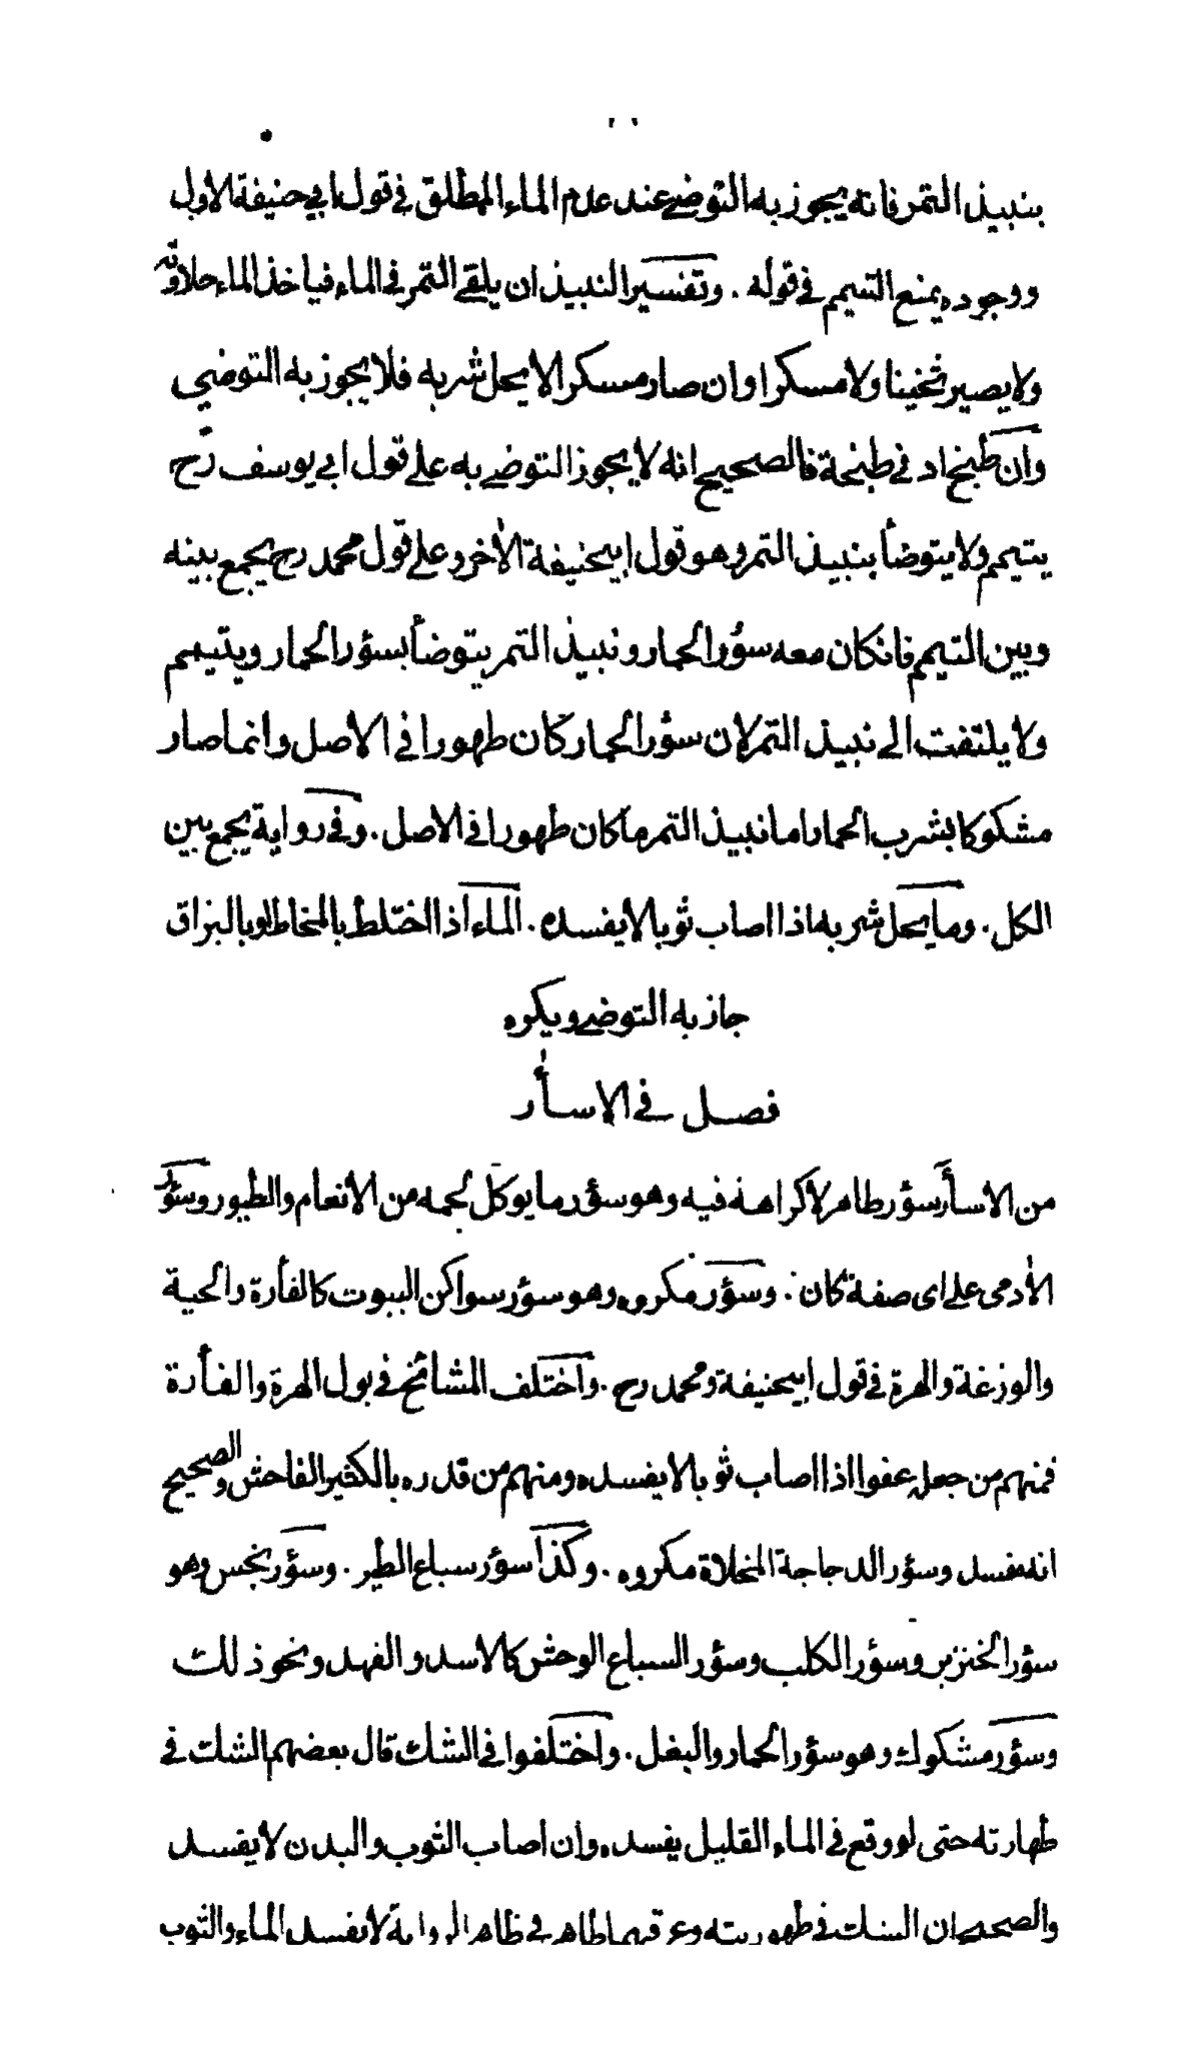 بنبيذ التمر فانه يجوز به التوضي عند عدم الماء المطلق في قول ابي حنيفة الاول
ووجوده يمنع التيمم في قوله . وتفسير النبيذ ان يلقي التمر في الماء فياخذ الماء حلاوته
ولا يصير ثخينا ولا مسكرا وان صار مسكرا لا يحل شربه فلا يجوز به التوضي
وان طبخ اد في طبخة فالصحيح انه لا يجوز التوضي به علي قول ابي يوسف رح
يتيمم ولا يتوضأ بنبيذ التمر وهو قول ابيحنيفة الاٰخر وعلي قول محمد رح يجمع بينه
وبين التيمم فانكان معه سؤر الحمار ونبيذ التمر يتوضأ بسؤر الحمار ويتيمم
ولا يلتفت الى نبيذ التمر لان سؤر الحمار كان طهورا في الاصل وانما صار
مشكوكا بشرب الحمار اما نبيذ التمر ما كان طهورا في الاصل . وفي رواية يجمع بين
الكل . وما يحل شربه اذا اصاب ثوبا لا يفسده . الماء اذا اختلط بالمخاط او بالبزاق
جاز به التوضي ويكره
فصل في الاسأر
من الاسأر سؤر طاهر لا كراهة فيه وهو سؤر ما يوكل لحمه من الانعام والطيور وسؤر
الاٰدمى علي اى صفة كان . وسؤر مكروه وهو سؤر سواكن البيوت كالفأرة والحية
والوزغة والهرة في قول ابيحنيفة ومحمد رح . واختلف المشائخ في بول الهرة والفأرة
فمنهم من جعله عفوا اذا اصاب ثوبا لا يفسده ومنهم من قدره بالكثير الفاحش والصحيح
انه مفسد وسؤر الدجاجة المخلاة مكروه . وكذا سؤر سباع الطير . وسؤر نجس وهو
سؤر الخنزير وسؤر الكلب وسؤر السباع الوحش كالاسد والفهد ونحو ذلك
وسؤر مشكوك وهو سؤر الحمار والبغل . واختلفوا في الشك قال بعضهم الشك في
طهارته حتى لو وقع في الماء القليل يفسده وان اصاب الثوب والبدن لا يفسد
والصحيح ان الشك في طهوريته وعرقهما طاهر في ظاهر الرواية لا يفسد الماء والثوب